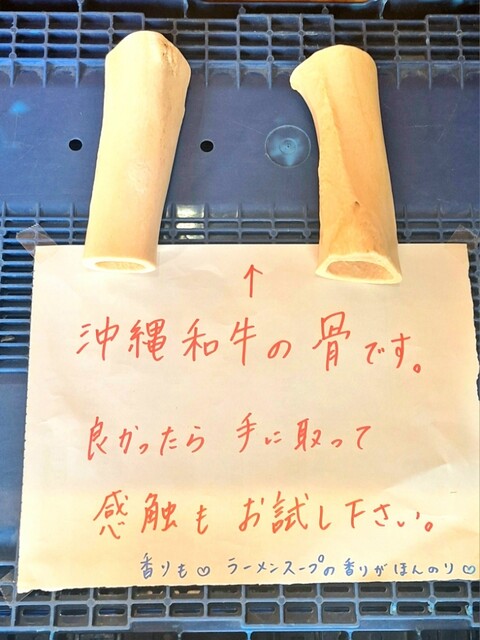 ↑
沖縄和牛の骨です。
良かったら手に取って
感触もお試し下さい。
香りも♡ ラーメンスープの香りがほんのり♡